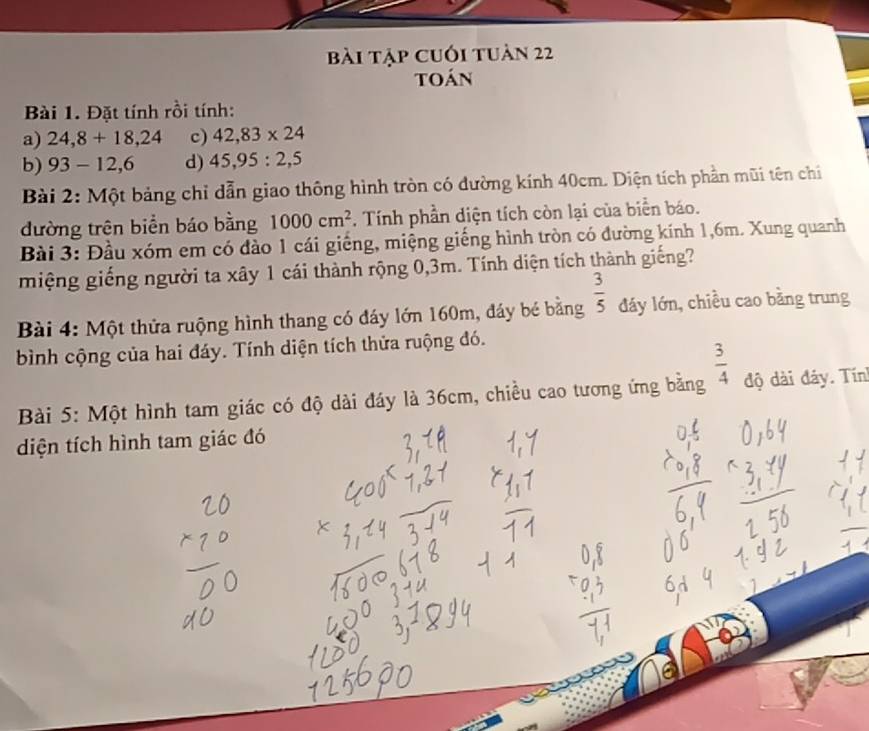 BÀI TẬP CUỐI TUẦN 22
TOÁN
Bài 1. Đặt tính rồi tính:
a) 24,8 + 18,24 c) 42,83 x 24
b) 93 – 12,6 d) 45,95 : 2,5
Bài 2: Một bảng chỉ dẫn giao thông hình tròn có đường kính 40cm. Diện tích phần mũi tên chỉ
đường trên biển báo bằng 1000 cm². Tính phần diện tích còn lại của biển báo.
Bài 3: Đầu xóm em có đào 1 cái giếng, miệng giếng hình tròn có đường kính 1,6m. Xung quanh
miệng giếng người ta xây 1 cái thành rộng 0,3m. Tính diện tích thành giếng?
Bài 4: Một thửa ruộng hình thang có đáy lớn 160m, đáy bé bằng 3/5 đáy lớn, chiều cao bằng trung
bình cộng của hai đáy. Tính diện tích thửa ruộng đó.
Bài 5: Một hình tam giác có độ dài đáy là 36cm, chiều cao tương ứng bằng 3/4 độ dài đáy. Tín
diện tích hình tam giác đó
20
400
× 3,14
1600
400
1200
125600
1,21
314
618
314
1,1
× 1,1
11
11
0,8
× 0,3
× 0,8
6,4
0,64
× 3,14
2 56